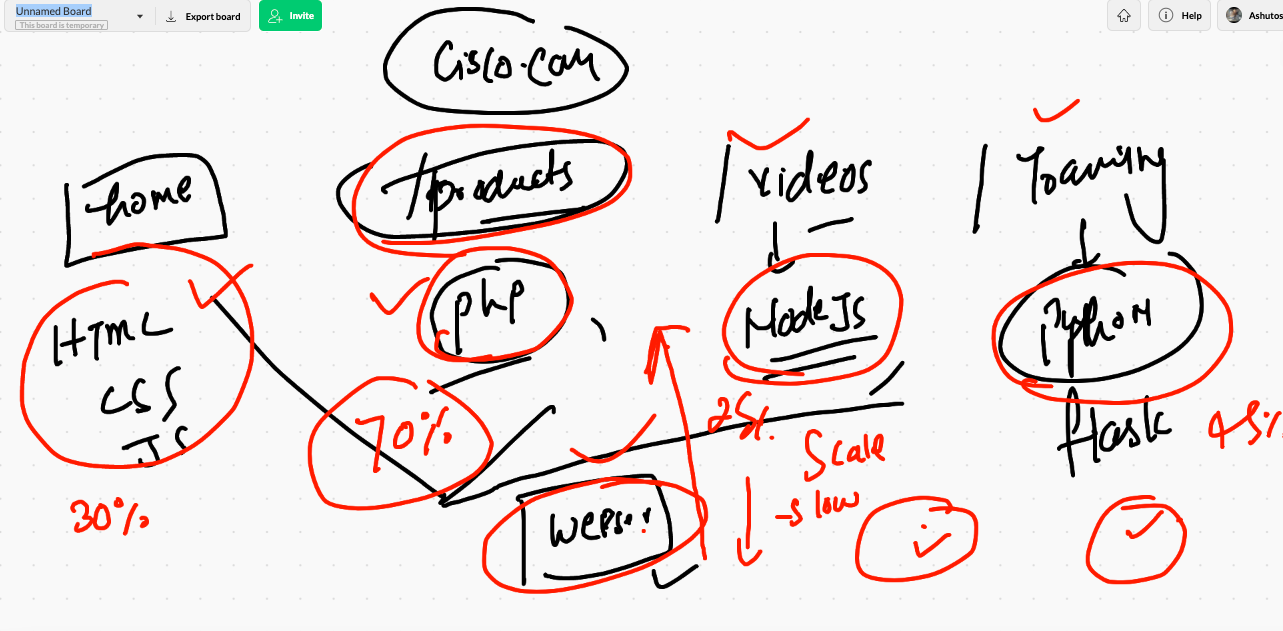 Unnamed Board
This board is temporary
Export board
Invite
Help
Ashutos
Cisco.com
home
/products
/videos
/Training
HTML
CSS
JS
php
NodeJS
Python
flask
70%
25%
45%
30%
Scale
slow